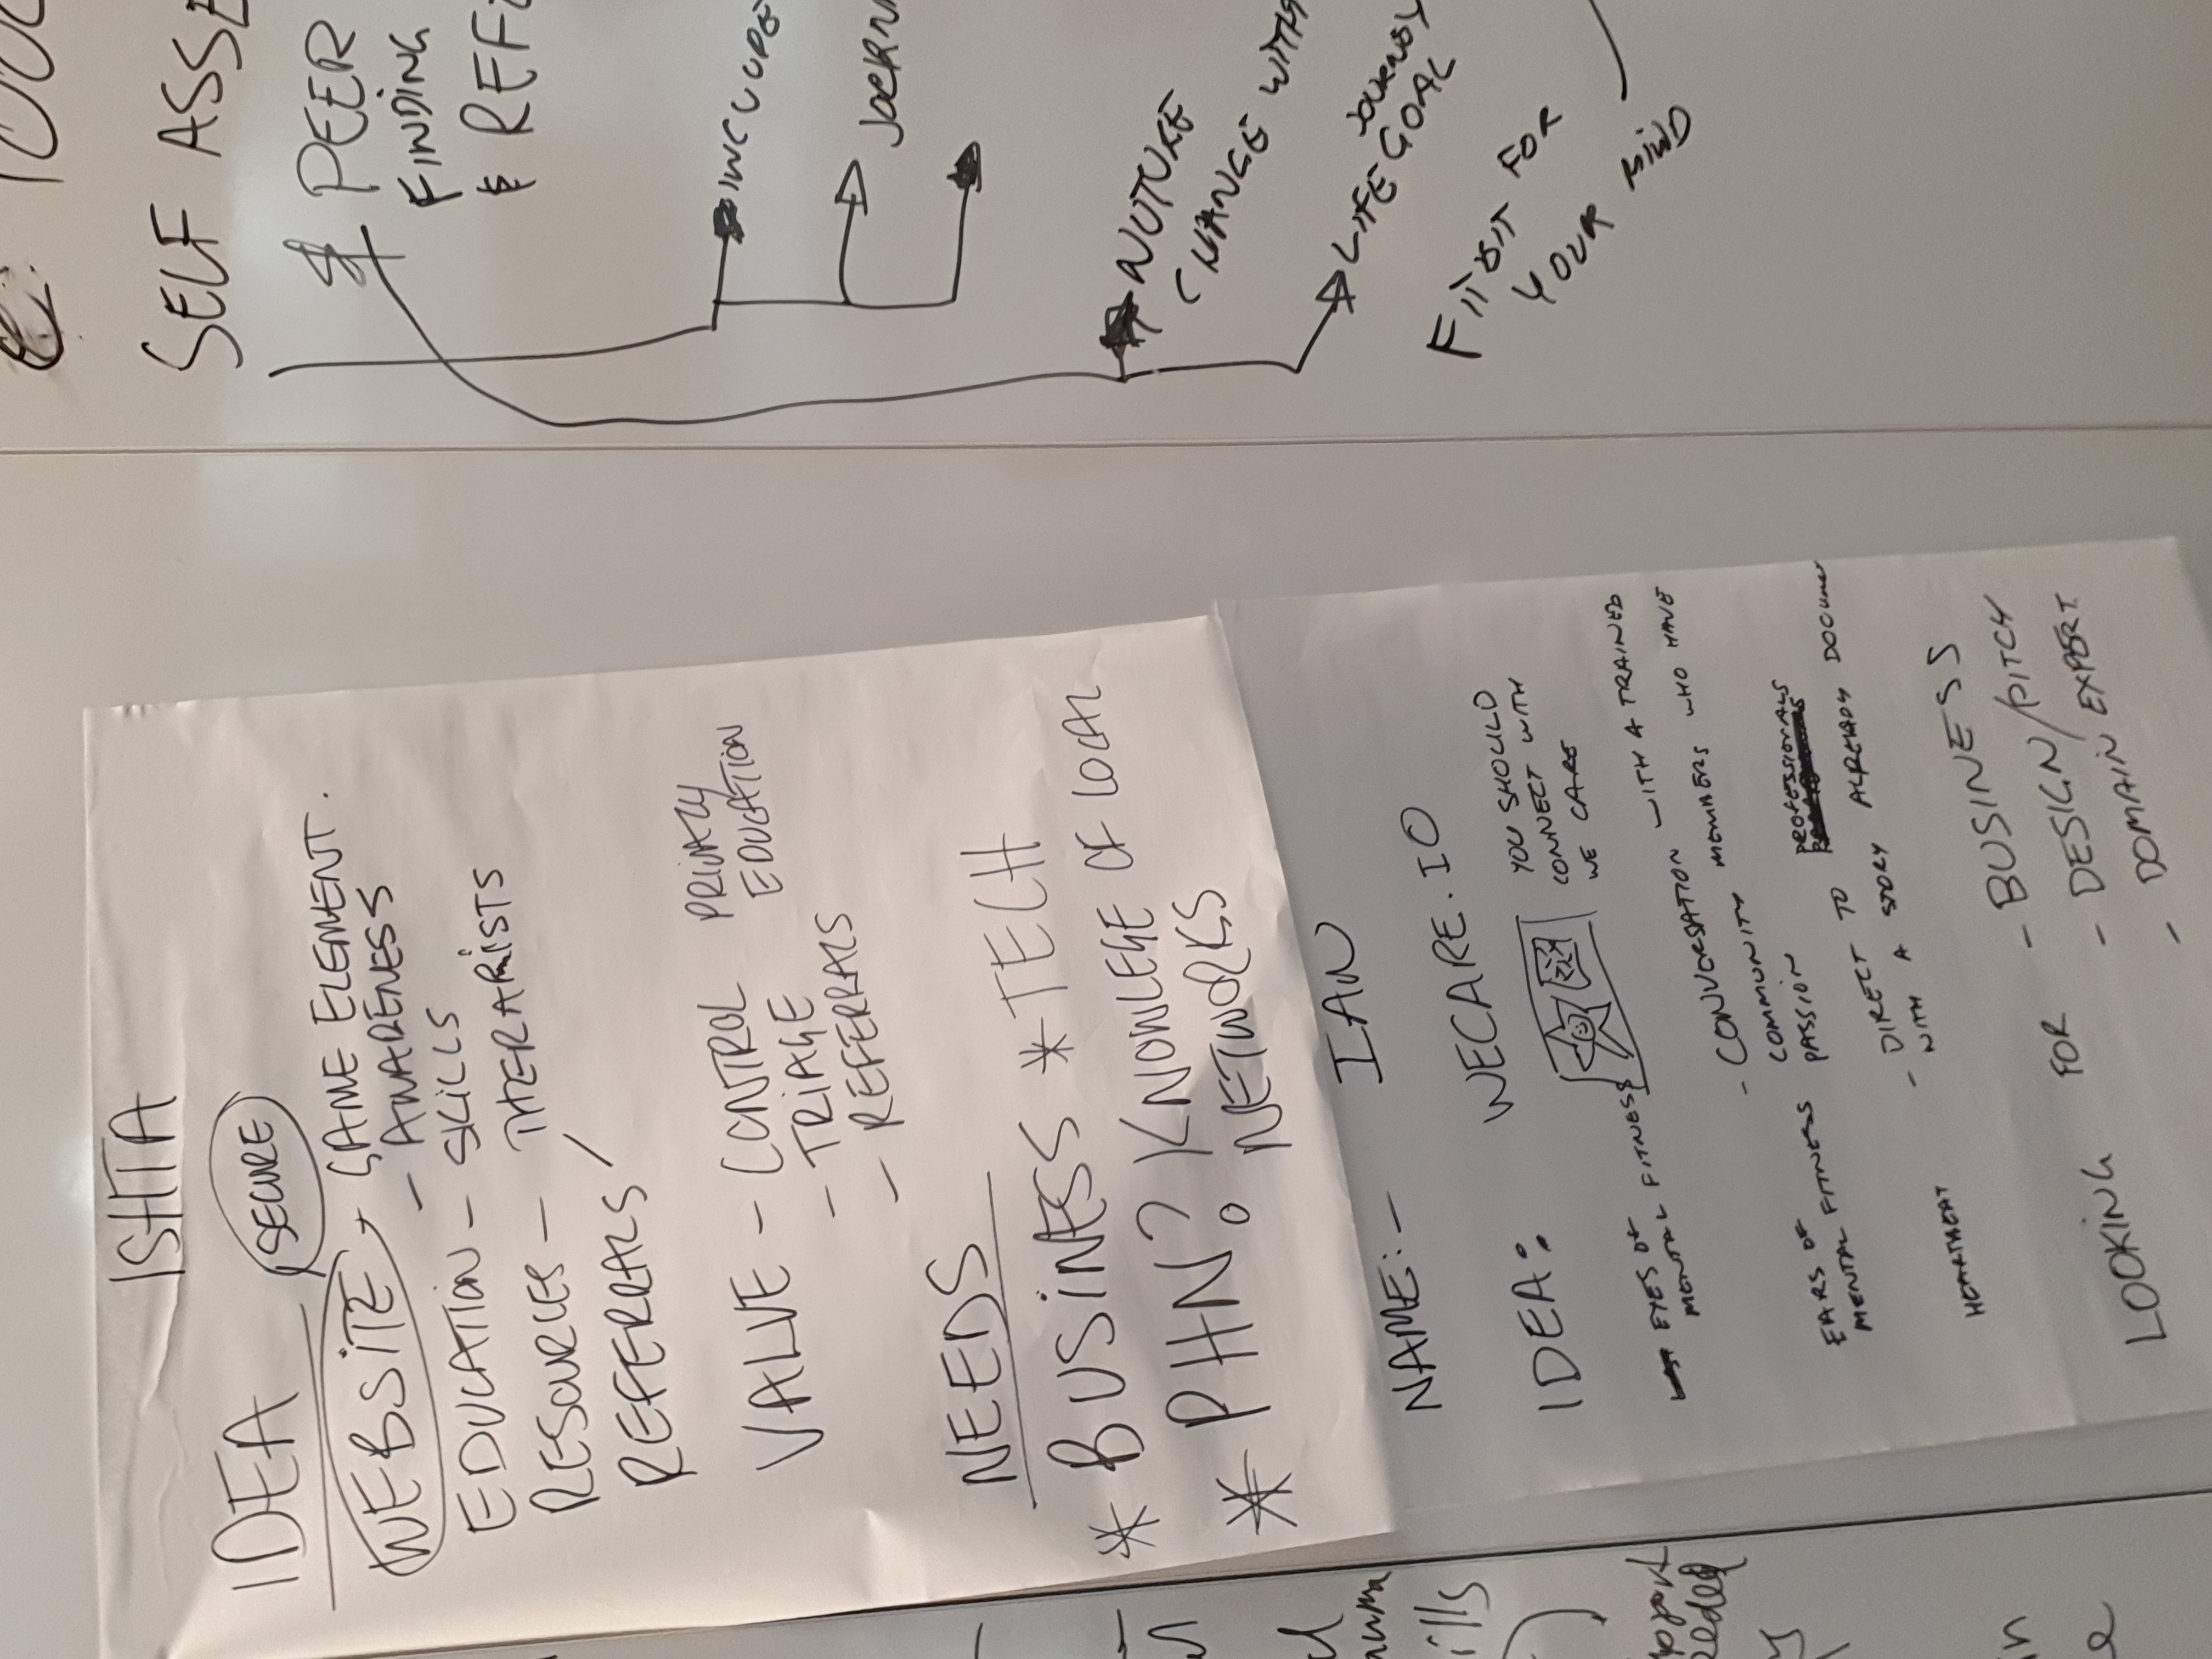 ISHTA
IDEA
SECURE
WEBSITE → GAME ELEMENT.
- AWARENESS
EDUCATION - SKILLS
RESOURCES - THERARISTS
REFERRALS /
VALUE - CONTROL PRIVAZY
- TRIAGE EDUCATION
- REFERRALS
NEEDS
* BUSINESS * TECH
* PHN? KNOWLEGE OF LOCAL
NETWORKS
NAME:- IAN
IDEA: WECARE.IO
YOU SHOULD
CONNECT WITH
WE CARE
EYES OF
MENTAL FITNESS
- CONVORSATION WITH A TRAINED
COMMUNITY MEMBERS WHO HAVE
COMMUNITY PROFESSIONALS
PASSION
EARS OF
MENTAL FITNESS
- DIRECT TO ALREADY DOCUMENT
WITH A STORY
LOOKING FOR
- BUSINESS
- DESIGN/PITCH
- DOMAIN EXPERT
SELF ASSE
PEER
FINDING
& REF
NUTURE
CHANGE WITH
LIFE JOURNEY
GOAL
FITBIT FOR
YOUR MIND
ills